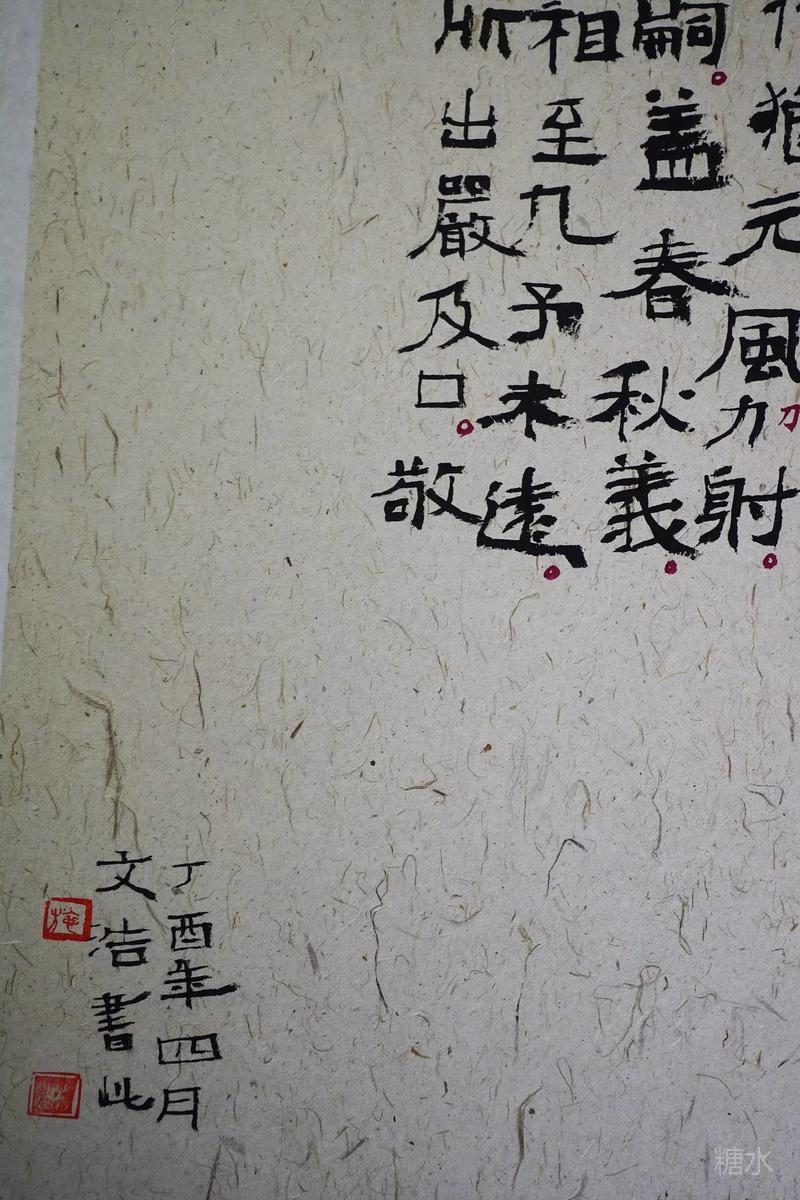 猶元風力射
嗣盖春秋義
祖至九予未遠
所出嚴及口敬
丁酉年四月
文浩書此
糖水